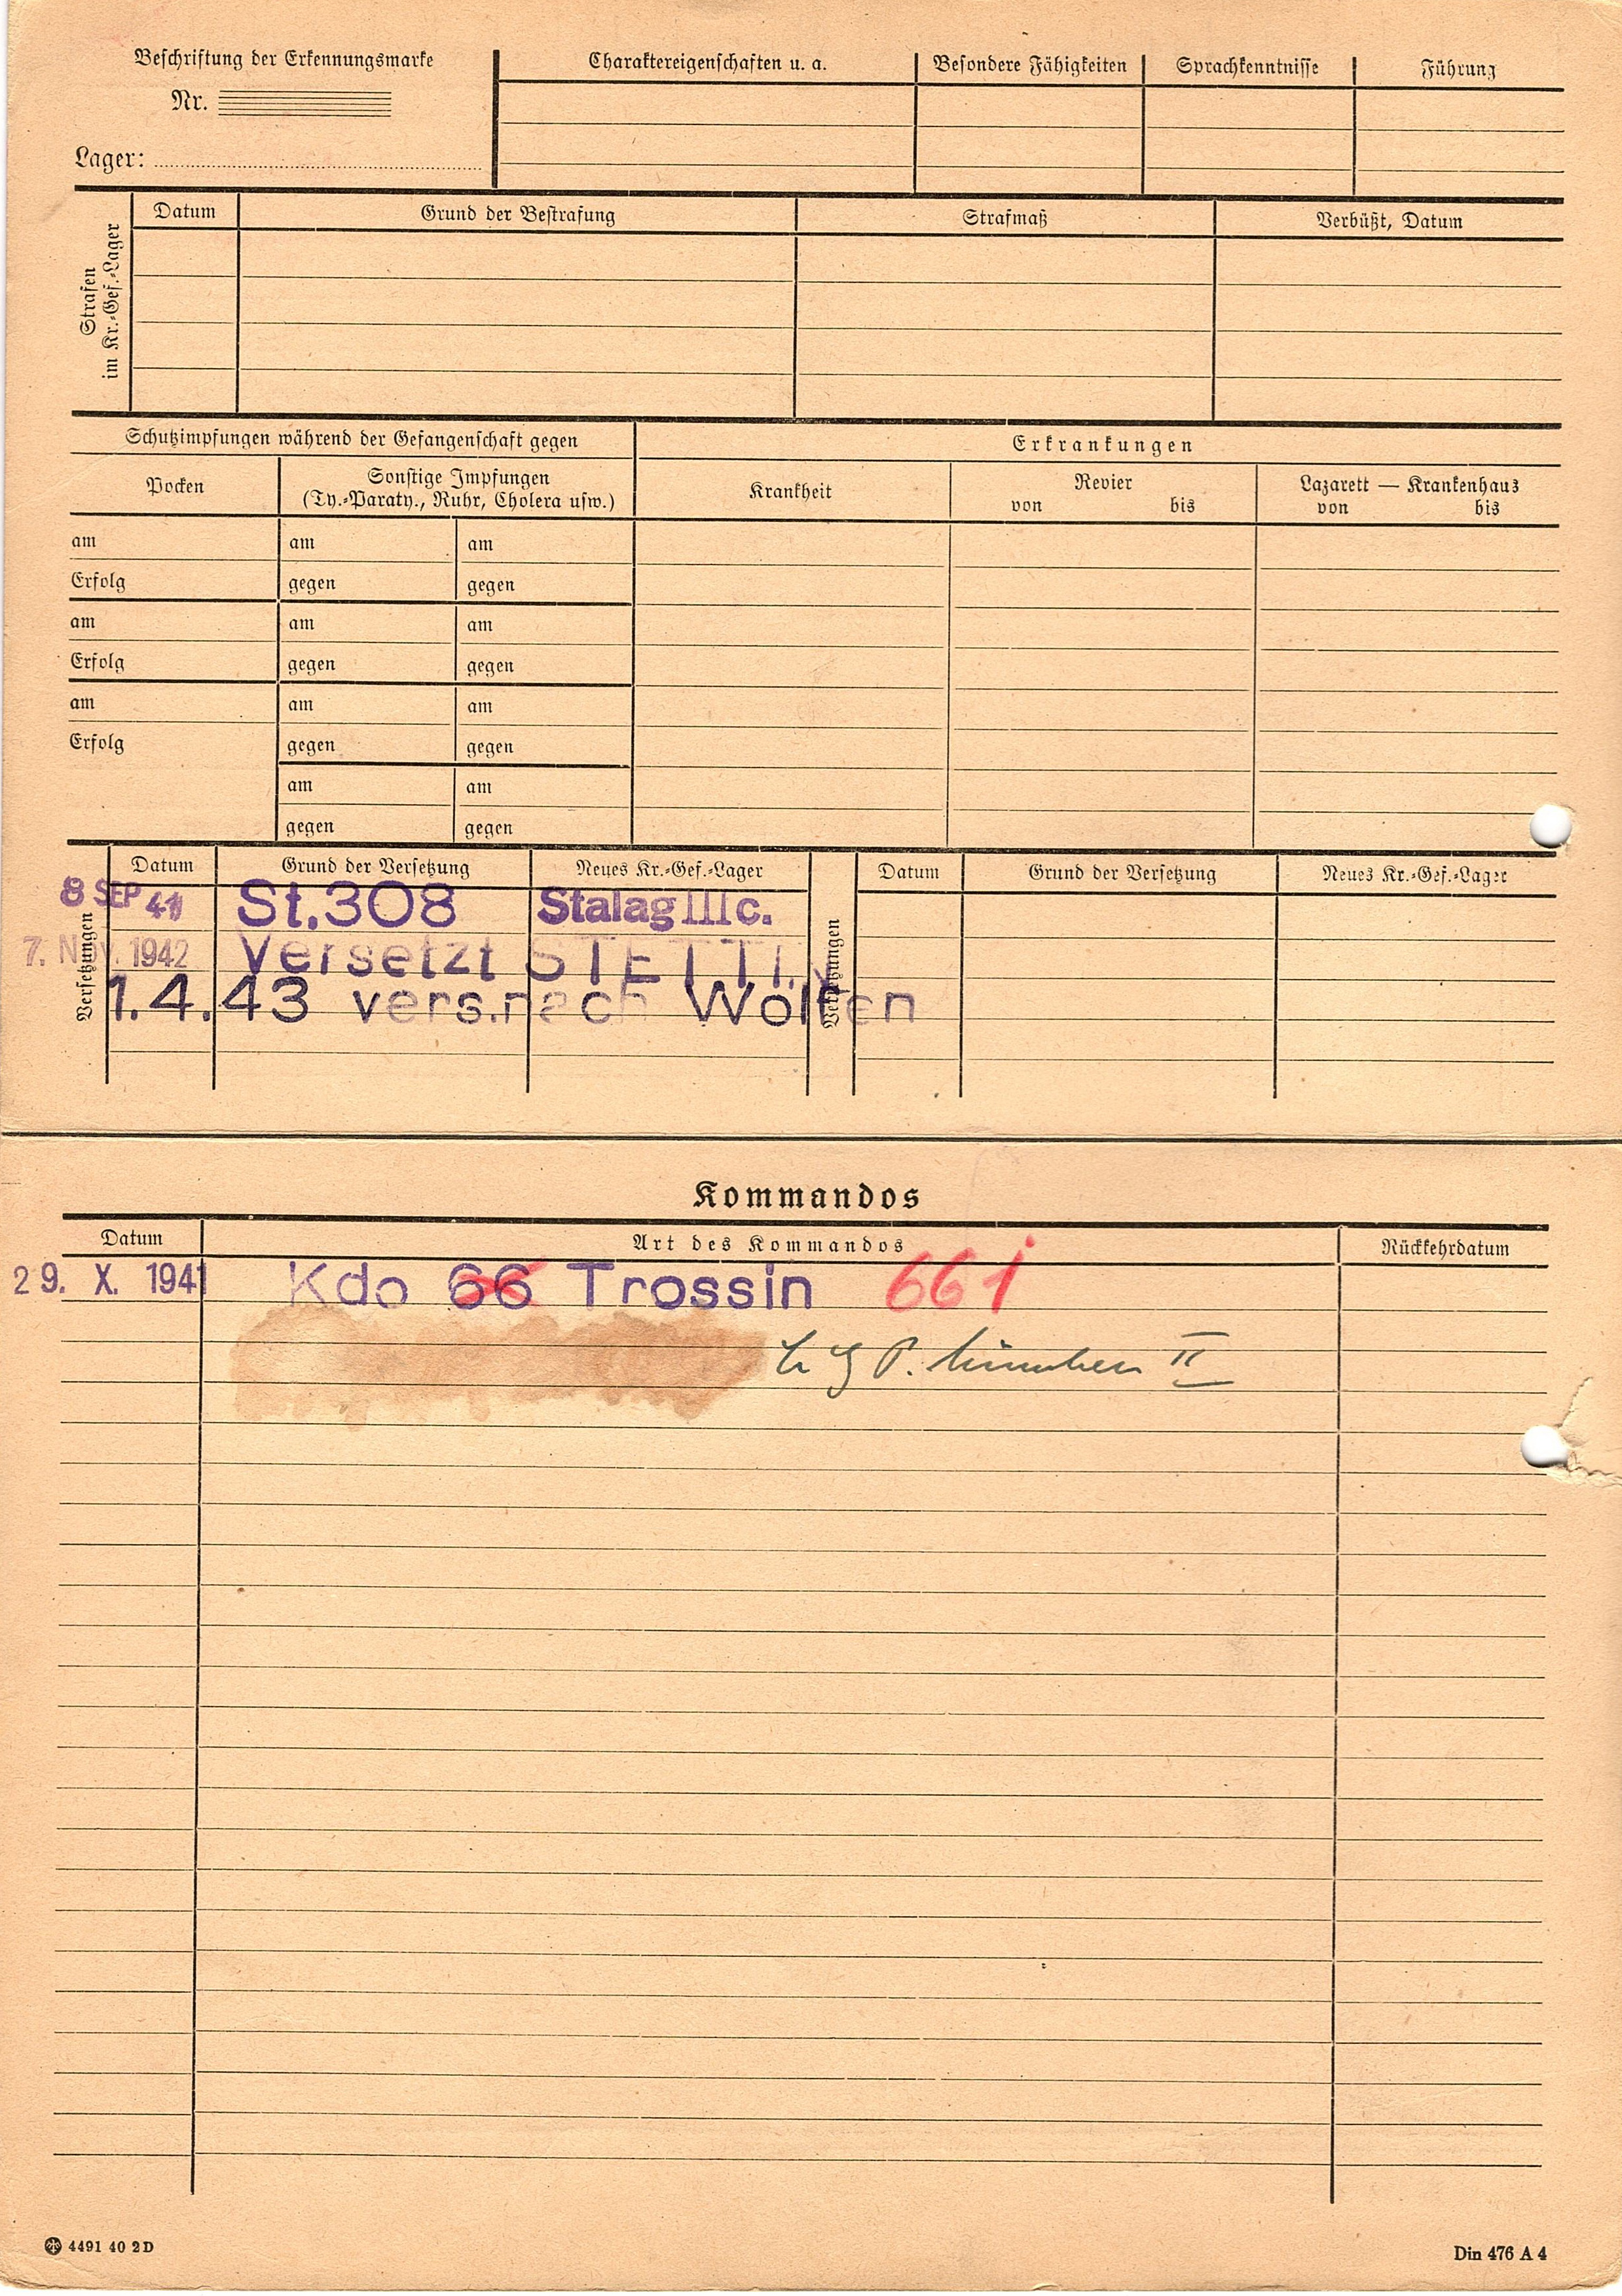 Beschriftung der Erkennungsmarke
Nr.
Lager:
Charaktereigenschaften u. a.
Besondere Fähigkeiten
Sprachkenntnisse
Führung
Strafen
im Kr.-Gef.-Lager
Datum
Grund der Bestrafung
Strafmaß
Verbüßt, Datum
Schutzimpfungen während der Gefangenschaft gegen
Pocken
Sonstige Impfungen
(Ty.-Paraty., Ruhr, Cholera usw.)
am am am
Erfolg gegen gegen
am am am
Erfolg gegen gegen
am am am
Erfolg gegen gegen
am am
gegen gegen
Erkrankungen
Krankheit
Revier
von bis
Lazarett — Krankenhaus
von bis
Versetzungen
Datum Grund der Versetzung Neues Kr.-Gef.-Lager
8 SEP 41 St.308 Stalag IIIc.
7. Nov. 1942 Versetzt STETTIN
1.4.43 vers.nach Wolfen
Versetzungen
Datum Grund der Versetzung Neues Kr.-Gef.-Lager
Kommandos
Datum Art des Kommandos Rückkehrdatum
29. X. 1941 Kdo 66 Trossin 661
P. München II
4491 40 2 D
Din 476 A 4